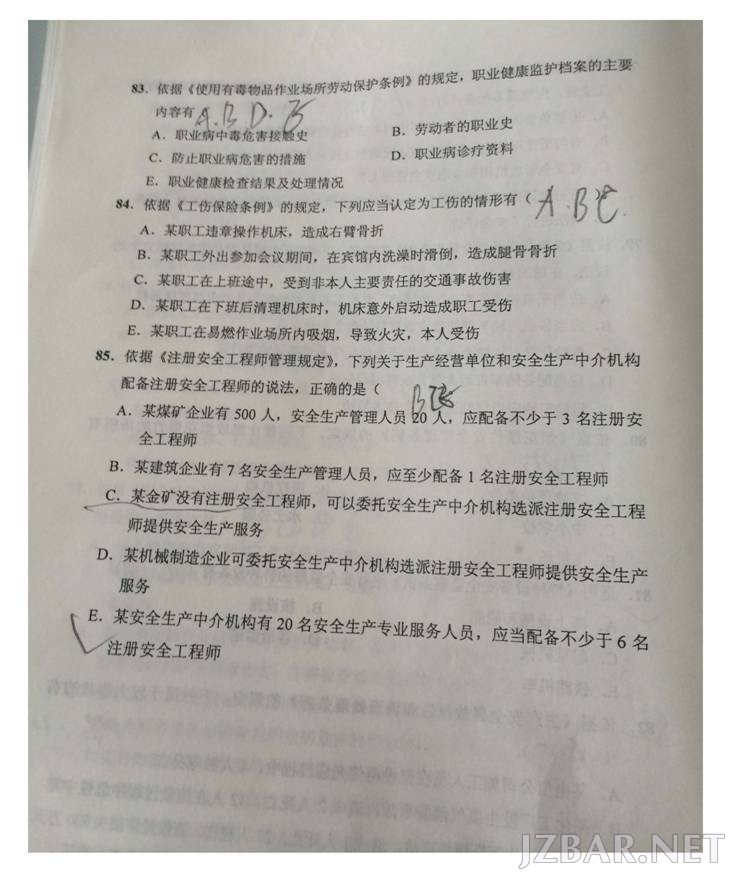 83. 依据《使用有毒物品作业场所劳动保护条例》的规定，职业健康监护档案的主要
内容有 A.B.D.E
A. 职业病中毒危害接触史 B. 劳动者的职业史
C. 防止职业病危害的措施 D. 职业病诊疗资料
E. 职业健康检查结果及处理情况
84. 依据《工伤保险条例》的规定，下列应当认定为工伤的情形有（ A.B
A. 某职工违章操作机床，造成右臂骨折
B. 某职工外出参加会议期间，在宾馆内洗澡时滑倒，造成腿骨骨折
C. 某职工在上班途中，受到非本人主要责任的交通事故伤害
D. 某职工在下班后清理机床时，机床意外启动造成职工受伤
E. 某职工在易燃作业场所内吸烟，导致火灾，本人受伤
85. 依据《注册安全工程师管理规定》，下列关于生产经营单位和安全生产中介机构
配备注册安全工程师的说法，正确的是（
A. 某煤矿企业有 500 人，安全生产管理人员 20 人，应配备不少于 3 名注册安
全工程师
B. 某建筑企业有 7 名安全生产管理人员，应至少配备 1 名注册安全工程师
C. 某金矿没有注册安全工程师，可以委托安全生产中介机构选派注册安全工程
师提供安全生产服务
D. 某机械制造企业可委托安全生产中介机构选派注册安全工程师提供安全生产
服务
E. 某安全生产中介机构有 20 名安全生产专业服务人员，应当配备不少于 6 名
注册安全工程师
JZBAR.NET